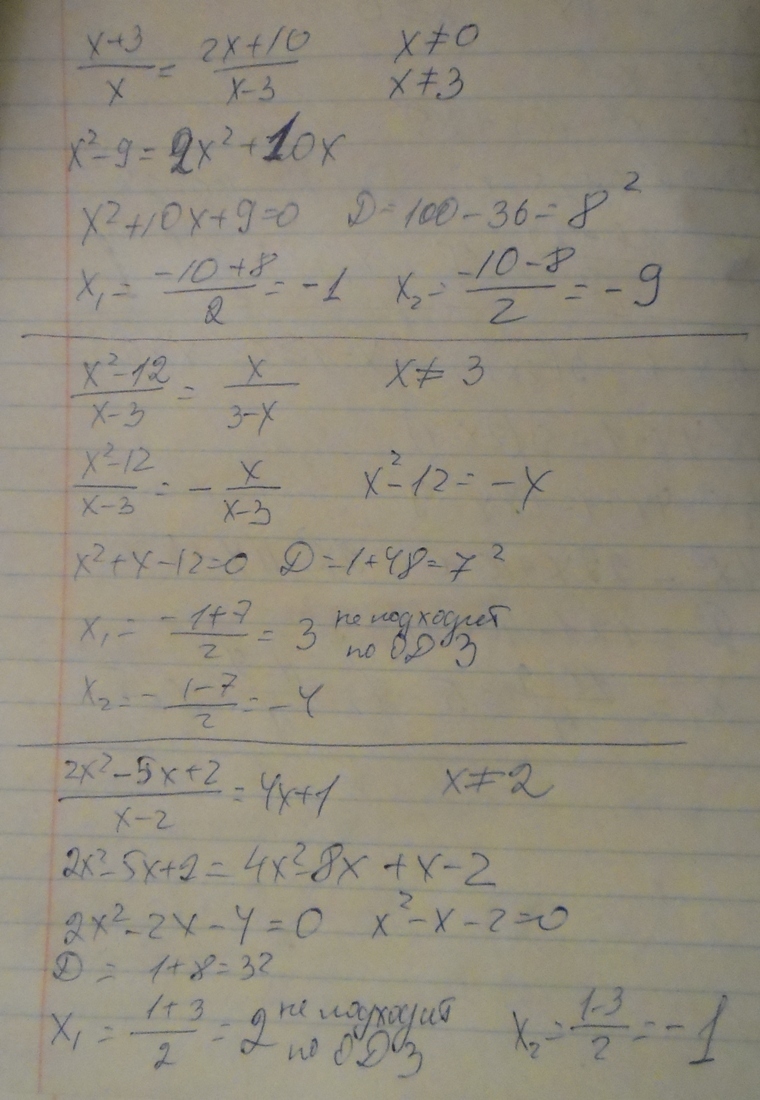 (x+3)/x = (2x+10)/(x-3)  x≠0
x≠3
x²-9=2x²+10x
x²+10x+9=0  D=100-36=8²
x₁=(-10+8)/2=-1  x₂=(-10-8)/2=-9
(x²-12)/(x-3) = x/(3-x)  x≠3
(x²-12)/(x-3) = -x/(x-3)  x²-12=-x
x²+x-12=0  D=1+48=7²
x₁=(-1+7)/2=3 не подходит
по ОДЗ
x₂=-(1-7)/2=-4
(2x²-5x+2)/(x-2)=4x+1  x≠2
2x²-5x+2=4x²-8x+x-2
2x²-2x-4=0  x²-x-2=0
D=1+8=3²
x₁=(1+3)/2=2 не подходит
по ОДЗ  x₂=(1-3)/2=-1